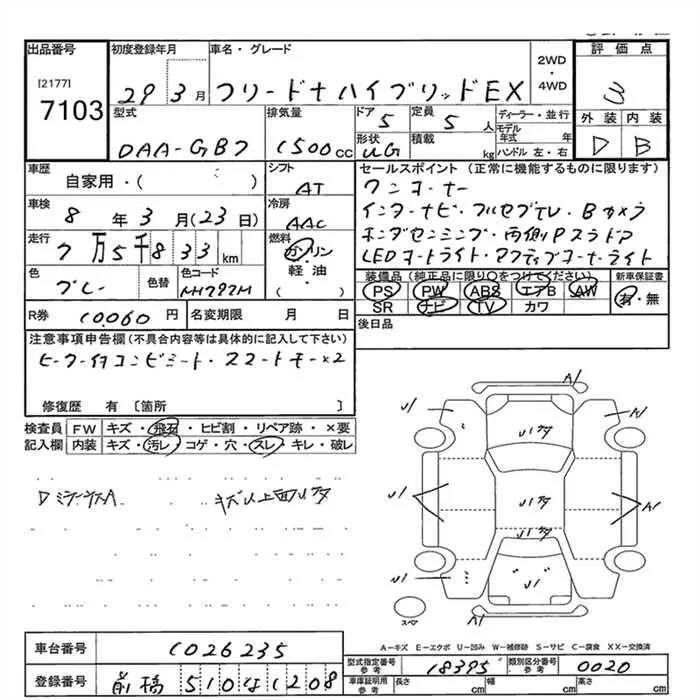 出品番号 初度登録年月 車名・グレード 2WD・4WD 評価点
[2177]
7103
29年3月 フリード+ハイブリッドEX 3
型式 排気量 ドア 定員 ディーラー・並行 外装 内装
DAA-GB7 1500cc 5 5人 モデル年式 年 D B
形状 積載 ハンドル 左・右
UG kg
車歴 シフト セールスポイント(正常に機能するものに限ります)
自家用・( ) AT ワンオーナー
車検 冷房 インターナビ・フルセグTV・Bカメラ
8年3月(23日) AAC ホンダセンシング・両側Pスラドア
走行 燃料 LEDオートライト・アクティブコーナーライト
7万5千833km ガソリン
軽・油
( )
色 色替 色コード 装備品(純正品に限り○をつけてください) 新車保証書
グレー NH797M PS PW ABS エアB AW 有・無
SR ナビ TV カワ
R券 10,060円 名変期限 月 日 後日品
注意事項申告欄(不具合内容等は具体的に記入して下さい)
ヒーター付コンビシート・スマートキー×2
修復歴 有 〔箇所 〕
検査員 FW キズ・飛石・ヒビ割・リペア跡・×要
記入欄 内装 キズ・汚レ・コゲ・穴・スレ・キレ・破レ
DミラーカバーA キズ以上面U多
A1
U1 A1
U1多
U1 U1多 A1
U1多
U1 U1
スペア A1
A-キズ E-エクボ U-凹み W-補修跡 S-サビ C-腐食 XX-交換済
車台番号 1026235
型式指定番号 参考 18395 類別区分番号 参考 0020
登録番号 前橋 510 な 1208
車庫証明用 参考 長さ cm 幅 cm 高さ cm